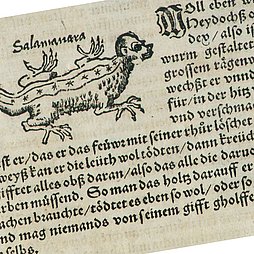 Salamanara
Woll eben
Heydochß
dex/also is
wurm gestaltet
grossem rägenw
wechßter vnnd
für/in der hitz
vnd verschma
ist er/das er das feüwr mit seiner thür löschet
weyß kan er die leüth wol tödten/dann kreüc
gifftet alles obß daran/also das alle die daruo
arben müssend. So man das holtz darauff er
achen brauchte/tödtet es eben so wol/oder so
nd mag niemands von seinem gifft gholffe
selbs.